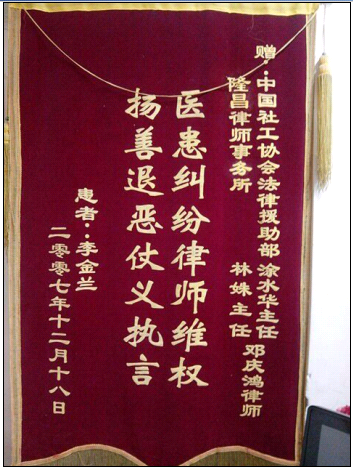 赠:中国社工协会法律援助部 涂水华主任
隆昌律师事务所 林姝主任
邓庆鸿律师
医患纠纷律师维权
扬善退恶仗义执言
患者:李金兰
二零零七年十二月十八日